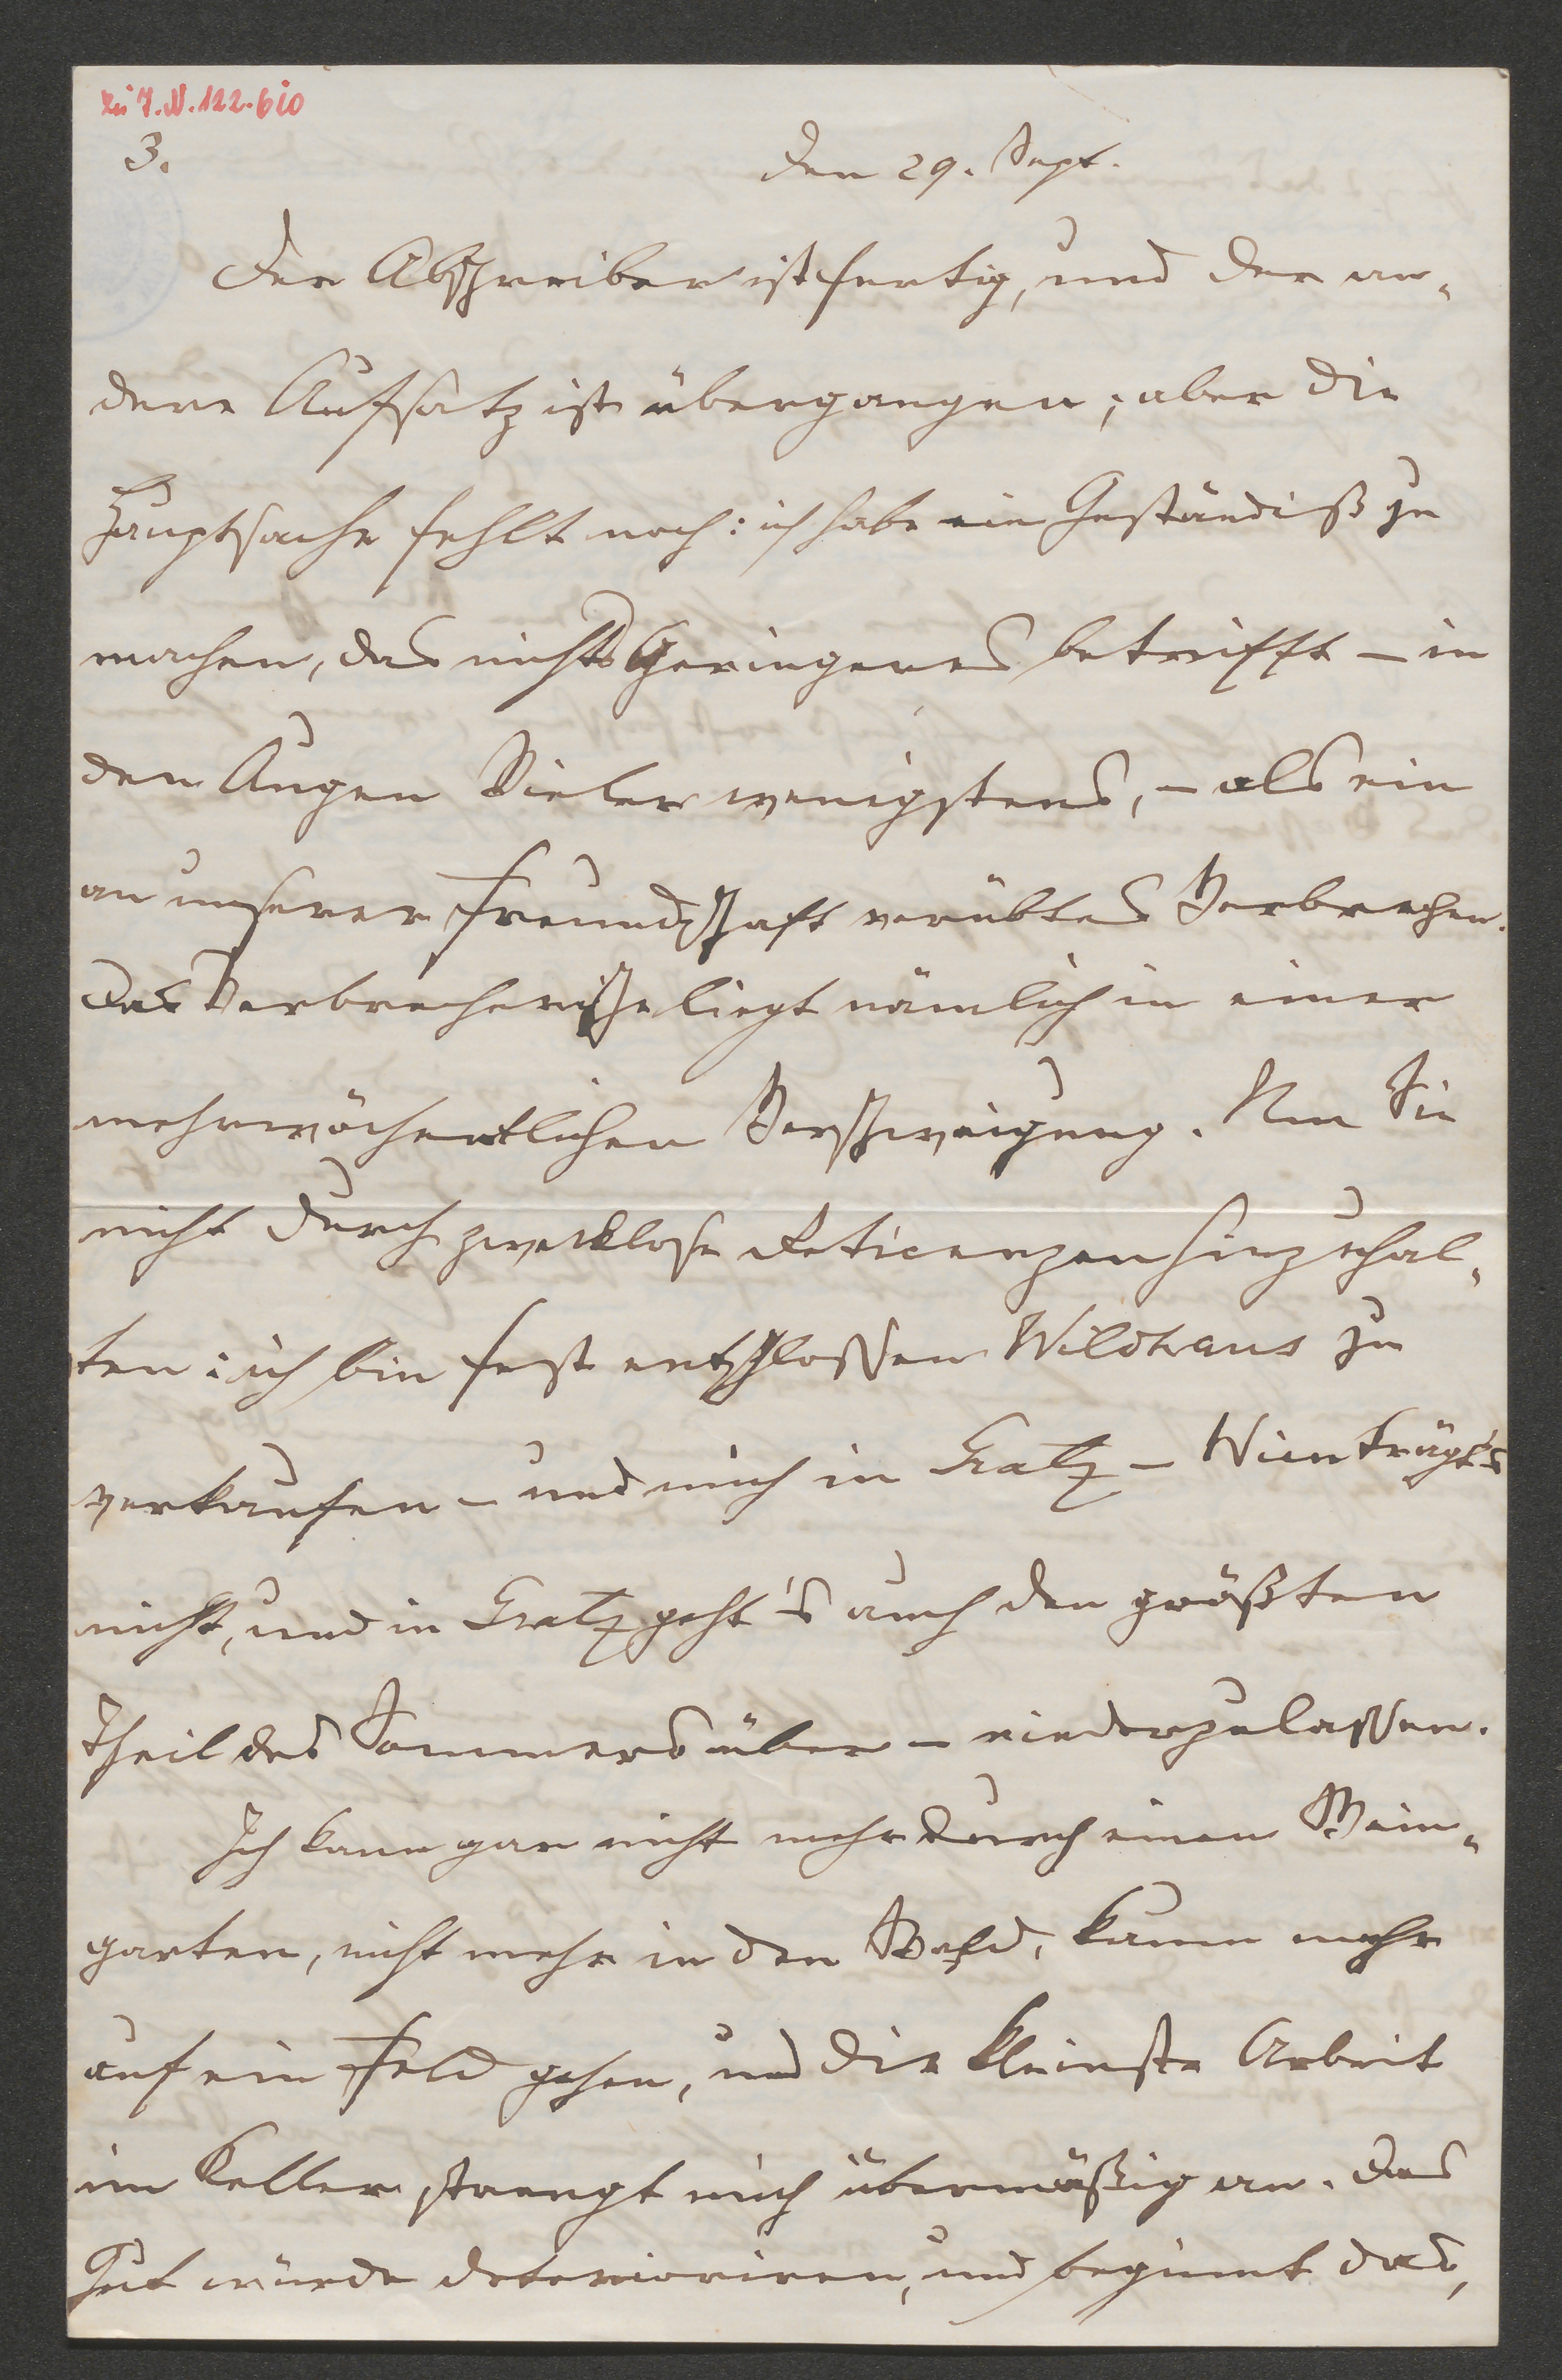 zu I.N. 122.610
3.
Den 29. Sept.
Der Abschreiber ist fertig, und der an-
dere Aufsatz ist übergangen; aber die
Hauptsache fehlt noch: ich habe ein Geständniß zu
machen, das nichts Geringeres betrifft – in
den Augen Vieler wenigstens, – als ein
an unserer Freundschaft verübtes Verbrechen.
Das Verbrecherische liegt nämlich in einer
mehrwöchentlichen Verschweigung. Um Sie
nicht durch zwecklose Reticenzen hinzuhal-
ten: ich bin fest entschlossen Wildhaus zu
verkaufen – und mich in Gratz – Wien trägt's
nicht, und in Gratz geht's auch den größten
Theil des Sommers über – niederzulassen.
Ich kann gar nicht mehr durch einen Wein-
garten, nicht mehr in den Wald, kaum mehr
auf ein Feld gehen, und die kleinste Arbeit
im Keller strengt mich übermäßig an. Das
Gut würde deterioriren, und beginnt das,